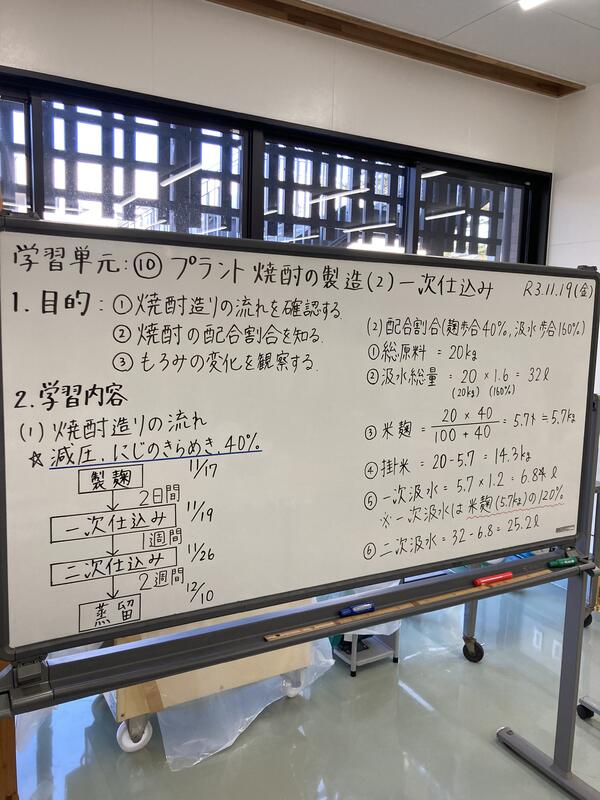 学習単元:⑩ プラント 焼酎の製造(2) 一次仕込み R3.11.19(金)
1.目的:①焼酎造りの流れを確認する.
②焼酎の配合割合を知る.
③もろみの変化を観察する.
2.学習内容
(1)焼酎造りの流れ
☆減圧、にじのきらめき、40%
製麹 11/17
2日間
一次仕込み 11/19
1週間
二次仕込み 11/26
2週間
蒸留 12/10
(2)配合割合(麹歩合40%、汲水歩合160%)
①総原料 = 20kg
②汲水総量 = 20 × 1.6 = 32ℓ
(20kg) (160%)
③米麹 = 20 × 40 / 100 + 40 = 5.71 ≒ 5.7kg
④掛米 = 20-5.7 = 14.3kg
⑤一次汲水 = 5.7 × 1.2 = 6.84 ℓ
※一次汲水は米麹(5.7kg)の120%
⑥二次汲水 = 32-6.8 = 25.2ℓ